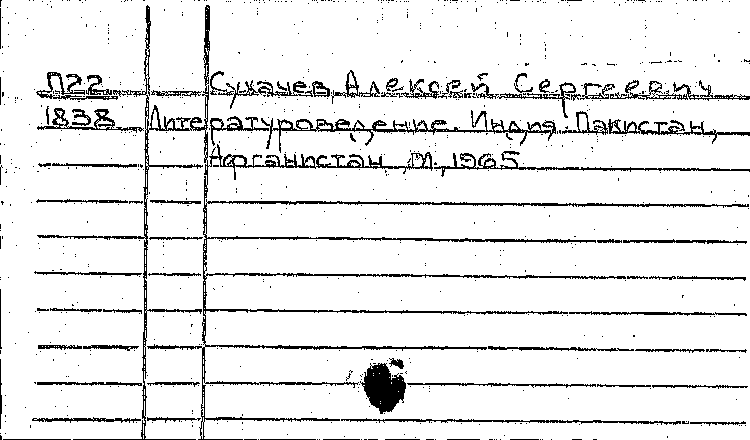 П22 Сухачев Алексей Сергеевич
1838 Литературоведение. Индия. Пакистан,
Афганистан, М., 1965